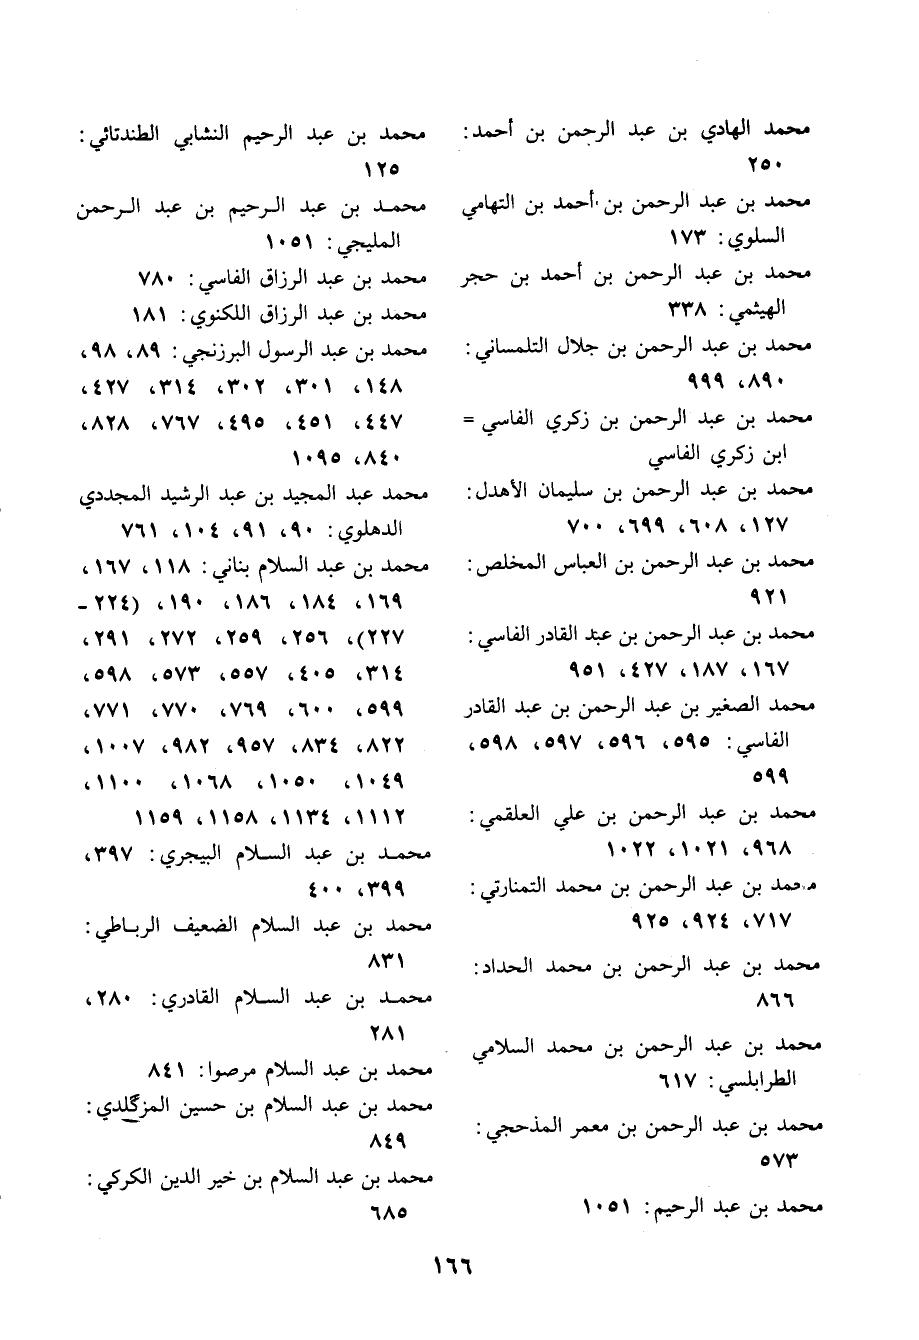 محمد الهادي بن عبد الرحمن بن أحمد:
٢٥٠
محمد بن عبد الرحمن بن أحمد بن التهامي
السلوي: ١٧٣
محمد بن عبد الرحمن بن أحمد بن حجر
الهيثمي: ٣٣٨
محمد بن عبد الرحمن بن جلال التلمساني:
٨٩٠، ٩٩٩
محمد بن عبد الرحمن بن زكري الفاسي =
ابن زكري الفاسي
محمد بن عبد الرحمن بن سليمان الأهدل:
١٢٧، ٦٠٨، ٦٩٩، ٧٠٠
محمد بن عبد الرحمن بن العباس المخلص:
٩٢١
محمد بن عبد الرحمن بن عبد القادر الفاسي:
١٦٧، ١٨٧، ٤٢٧، ٩٥١
محمد الصغير بن عبد الرحمن بن عبد القادر
الفاسي: ٥٩٥، ٥٩٦، ٥٩٧، ٥٩٨،
٥٩٩
محمد بن عبد الرحمن بن علي العلقمي:
٩٦٨، ١٠٢١، ١٠٢٢
محمد بن عبد الرحمن بن محمد التمنارتي:
٧١٧، ٩٢٤، ٩٢٥
محمد بن عبد الرحمن بن محمد الحداد:
٨٦٦
محمد بن عبد الرحمن بن محمد السلامي
الطرابلسي: ٦١٧
محمد بن عبد الرحمن بن معمر المذحجي:
٥٧٣
محمد بن عبد الرحيم: ١٠٥١
محمد بن عبد الرحيم النشابي الطندتائي:
١٢٥
محمد بن عبد الرحيم بن عبد الرحمن
المليجي: ١٠٥١
محمد بن عبد الرزاق الفاسي: ٧٨٠
محمد بن عبد الرزاق اللكنوي: ١٨١
محمد بن عبد الرسول البرزنجي: ٨٩، ٩٨،
١٤٨، ٣٠١، ٣٠٢، ٣١٤، ٤٢٧،
٤٤٧، ٤٥١، ٤٩٥، ٧٦٧، ٨٢٨،
٨٤٠، ١٠٩٥
محمد عبد المجيد بن عبد الرشيد المجددي
الدهلوي: ٩٠، ٩١، ١٠٤، ٧٦١
محمد بن عبد السلام بناني: ١١٨، ١٦٧،
١٦٩، ١٨٤، ١٨٦، ١٩٠، (٢٢٤ -
٢٢٧)، ٢٥٦، ٢٥٩، ٢٧٢، ٢٩١،
٣١٤، ٤٠٥، ٥٥٧، ٥٧٣، ٥٩٨،
٥٩٩، ٦٠٠، ٧٦٩، ٧٧٠، ٧٧١،
٨٢٢، ٨٣٤، ٩٥٧، ٩٨٢، ١٠٠٧،
١٠٤٩، ١٠٥٠، ١٠٦٨، ١١٠٠،
١١١٢، ١١٣٤، ١١٥٨، ١١٥٩
محمد بن عبد السلام البيجري: ٣٩٧،
٣٩٩، ٤٠٠
محمد بن عبد السلام الضعيف الرباطي:
٨٣١
محمد بن عبد السلام القادري: ٢٨٠،
٢٨١
محمد بن عبد السلام مرصوا: ٨٤١
محمد بن عبد السلام بن حسين المزگلدي:
٨٤٩
محمد بن عبد السلام بن خير الدين الكركي:
٦٨٥
١٦٦